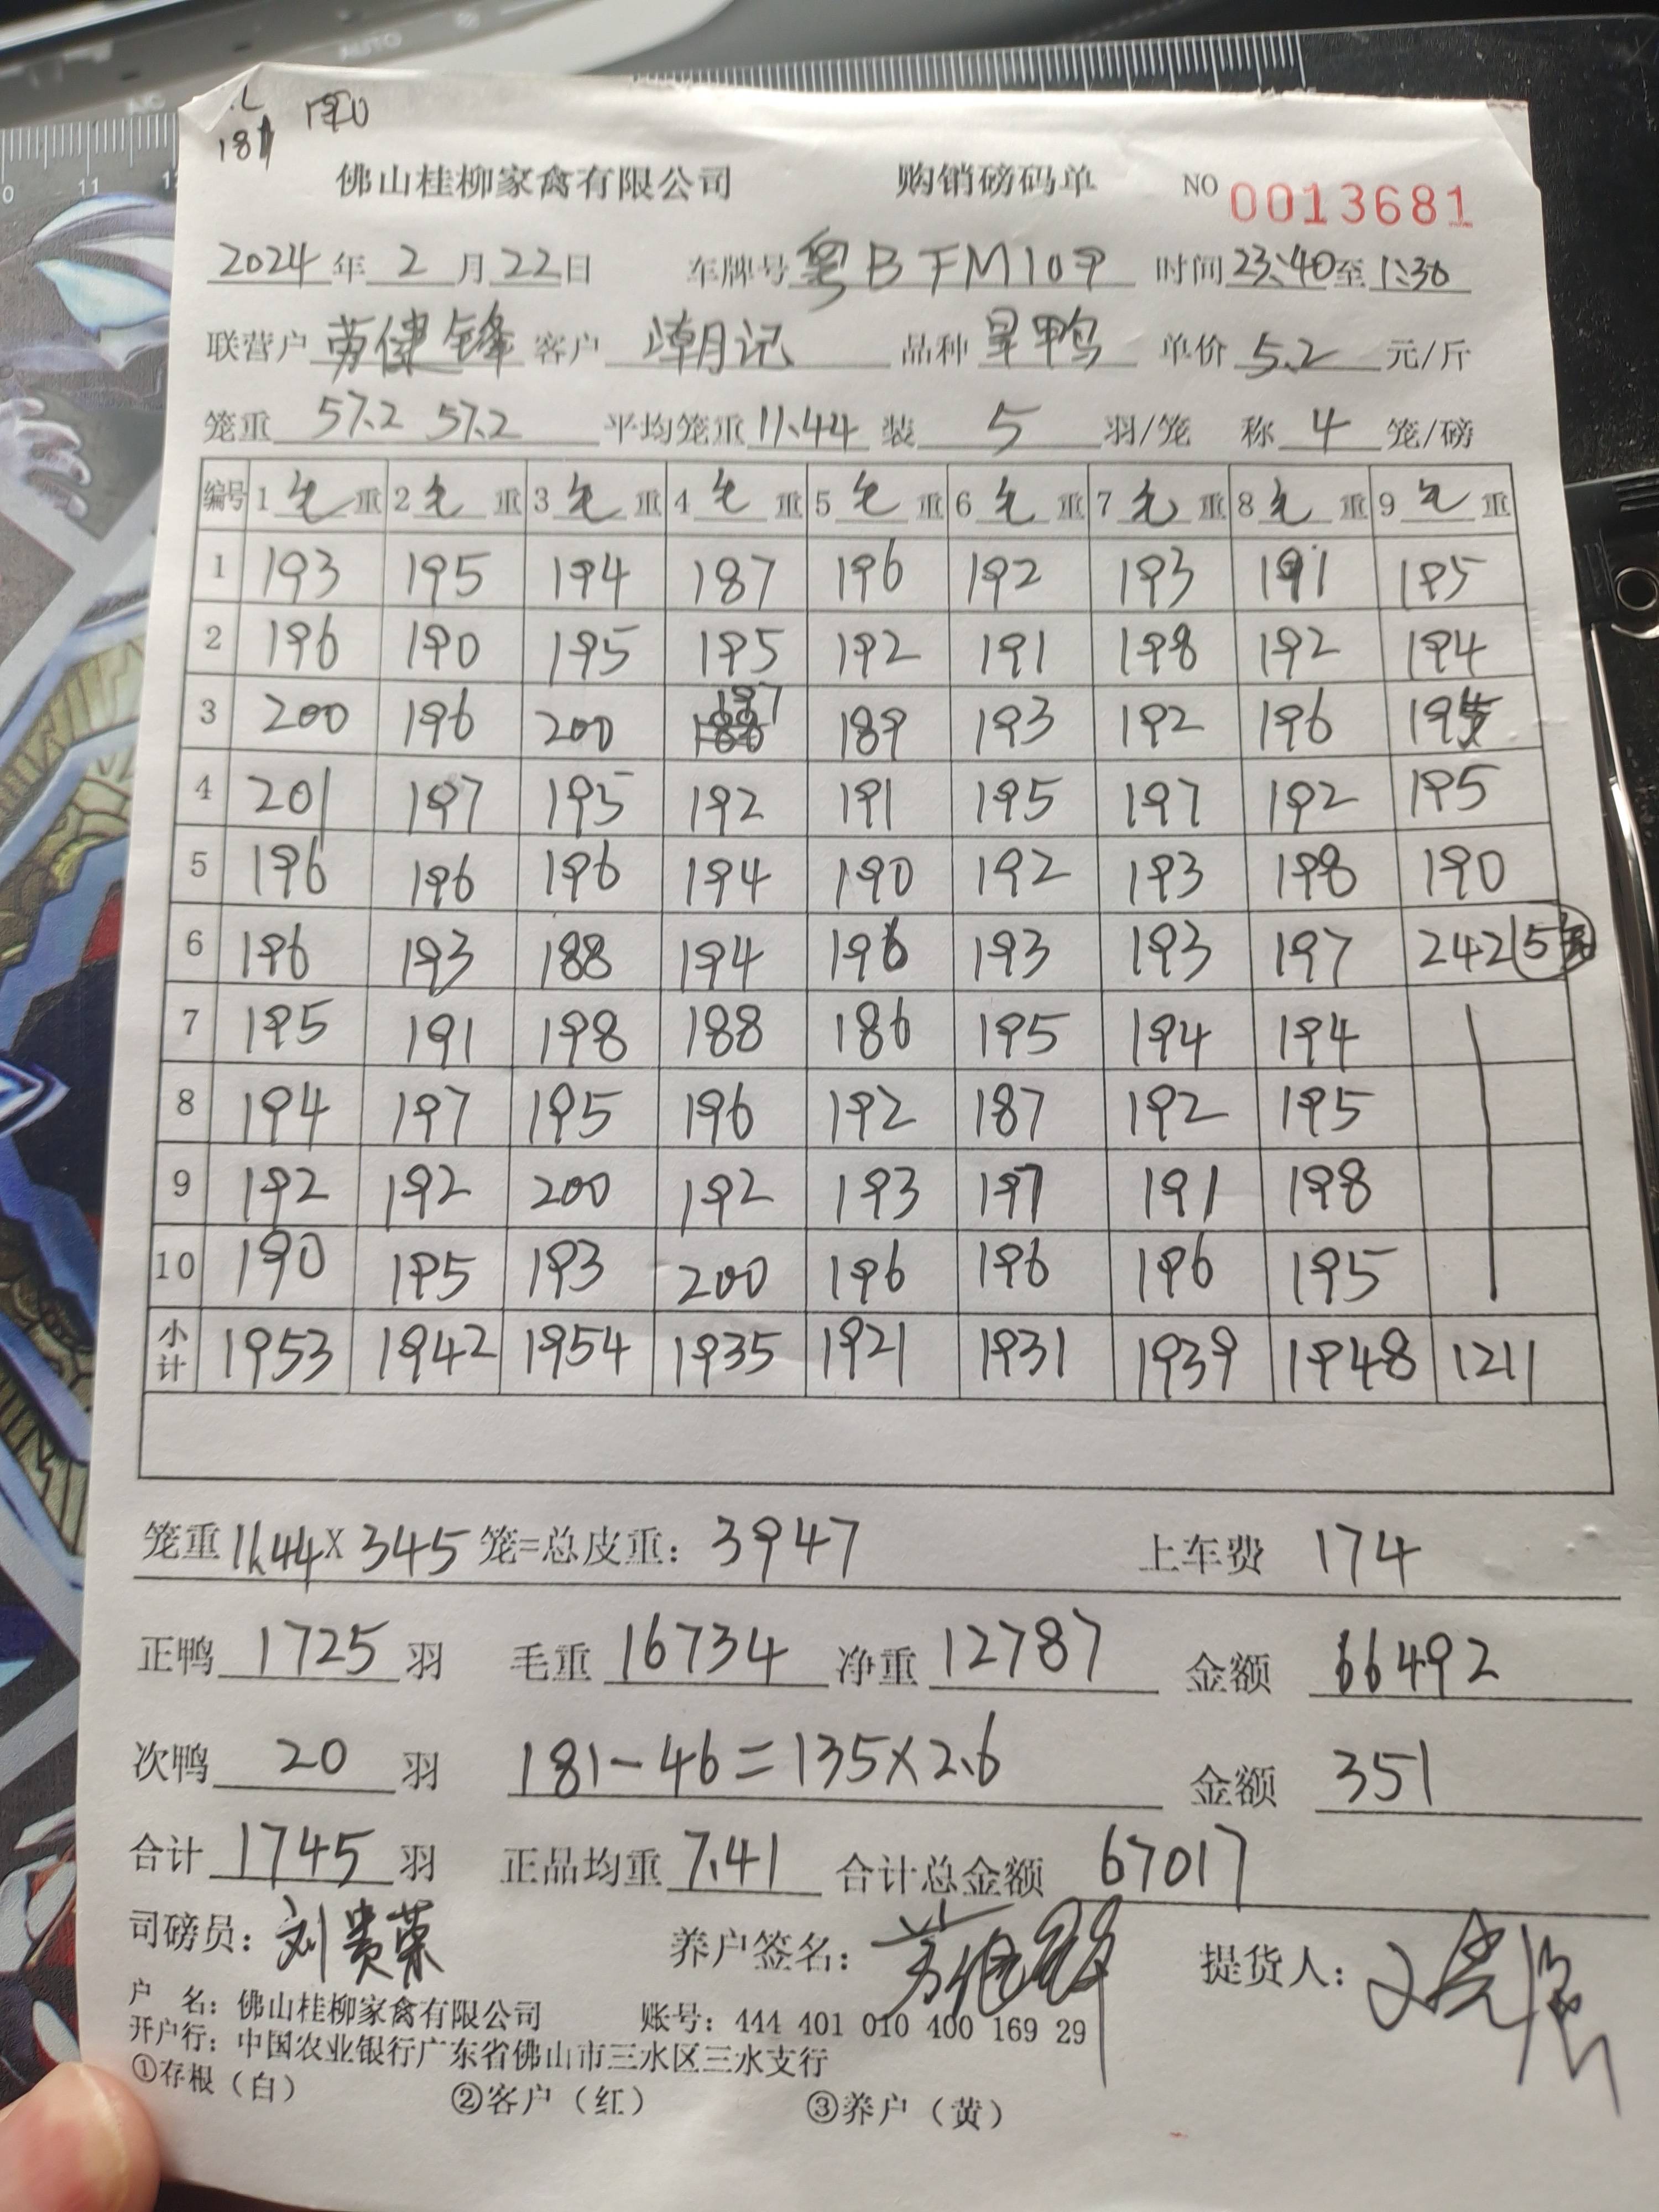 181 190
佛山桂柳家禽有限公司 购销磅码单 NO 0013681
2024年2月22日 车牌号粤BFM109 时间23:40至1:30
联营户劳健锋 客户潮记 品种旱鸭 单价5.2元/斤
笼重57.2 57.2 平均笼重11.44 装5羽/笼 称4笼/磅
编号 1毛重 2毛重 3毛重 4毛重 5毛重 6毛重 7毛重 8毛重 9毛重
1 193 195 194 187 196 192 193 191 195
2 196 190 195 195 192 191 198 192 194
3 200 196 200 197 189 193 192 196 195
4 201 197 195 192 191 195 197 192 195
5 196 196 196 194 190 192 193 198 190
6 196 193 188 194 196 193 193 197 242 5
7 195 191 198 188 186 195 194 194
8 194 197 195 196 192 187 192 195
9 192 192 200 192 193 197 191 198
10 190 195 193 200 196 196 196 195
小计 1953 1942 1954 1935 1921 1931 1939 1948 1211
笼重11.44X345笼=总皮重：3947 上车费 174
正鸭1725羽 毛重16734 净重12787 金额 66492
次鸭20羽 181-46=135×2.6 金额 351
合计1745羽 正品均重7.41 合计总金额 67017
司磅员：刘贵荣 养户签名： 提货人：
户 名：佛山桂柳家禽有限公司 账号：444 401 010 400 169 29
开户行：中国农业银行广东省佛山市三水区三水支行
①存根（白） ②客户（红） ③养户（黄）